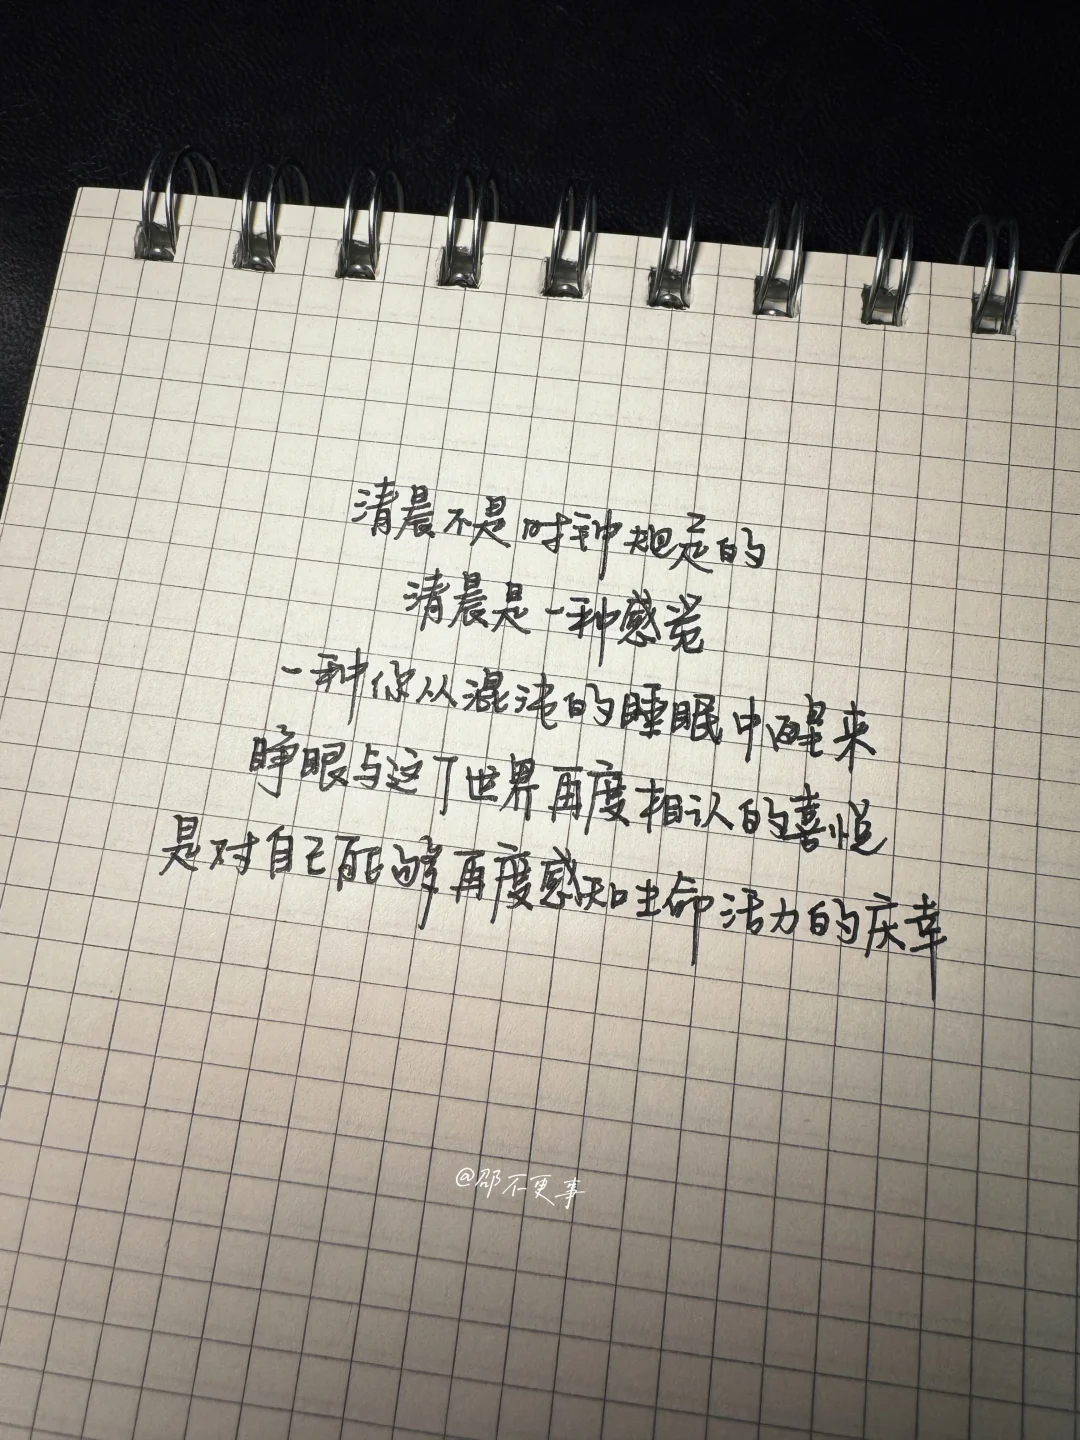 清晨不是时钟规定的
清晨是一种感觉
一种你从混沌的睡眠中醒来
睁眼与这个世界再度相认的喜悦
是对自己能够再度感知生命活力的庆幸
@邵不更事